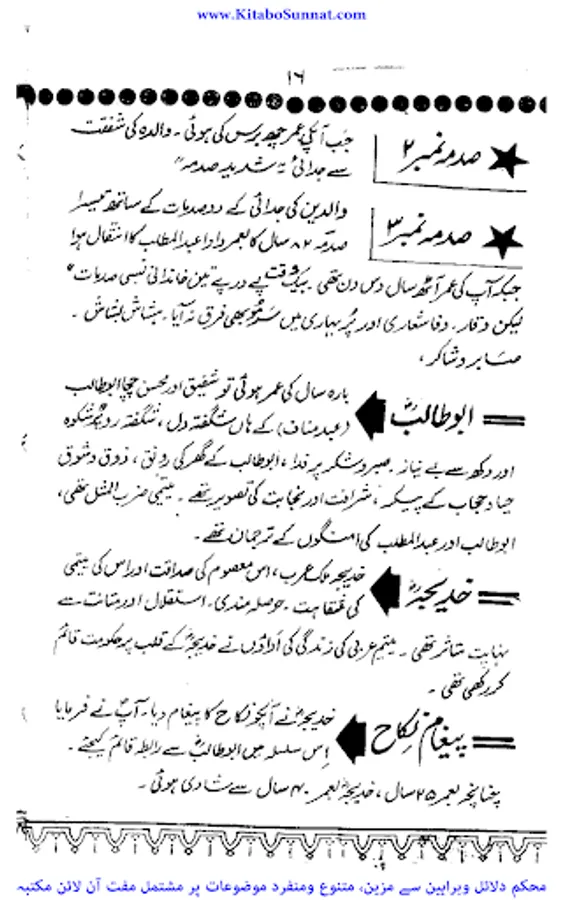 www.KitaboSunnat.com
۱۶
صدمہ نمبر ۲
جب آپکی عمر چھ برس کی ہوئی۔ والدہ کی شفقت
سے جدائی شدید صدمہ"
صدمہ نمبر ۳
والدین کی جدائی کے دو صدمات کے ساتھ تیسرا
صدمہ ۸۲ سال کا بعمر دادا عبدالمطلب کا انتقال ہوا
جبکہ آپ کی عمر آٹھ سال دس دن تھی۔ بیک وقت پے درپے تین خاندانی نسبی صدمات"
لیکن وقار۔ وفا شعاری اور پُر بہاری میں سَرِمُو بھی فرق نہ آیا۔ ہشاش بشاش۔
صابر و شاکر،
ابوطالبؓ
بارہ سال کی عمر ہوئی تو شفیق اور محسن چچا ابوطالب
(عبدمناف) کے ہاں شگفتہ دل، شگفتہ رو پُرشکوہ
اور دکھ سے بے نیاز۔ صبر و شکر پر فدا، ابوطالب کے گھر کی رونق، ذوق و شوق
حیا و حجاب کے پیکر، شرافت اور نجابت کی تصویر تھے۔ یتیمی ضرب المثل تھی،
ابوطالب اور عبدالمطلب کی امنگوں کے ترجمان تھے۔
خدیجہؓ
خدیجہ ملکہ عرب، اس معصوم کی صداقت اور اس کی یتیمی
کی ثقاہت۔ حوصلہ مندی۔ استقلال اور متانت سے
نہایت متاثر تھی۔ یتیم عربی کی زندگی کی اداؤں نے خدیجہؓ کے قلب پر حکومت قائم
کر رکھی تھی۔
پیغام نکاح
خدیجہؓ نے آپکو نکاح کا پیغام دیا۔ آپؐ نے فرمایا
اِس سلسلہ میں ابوطالبؓ سے رابطہ قائم کیجئے۔
چنانچہ بعمر ۲۵ سال، خدیجہؓ بعمر ۴۰ سال سے شادی ہوئی۔
محکم دلائل وبراہین سے مزین، متنوع ومنفرد موضوعات پر مشتمل مفت آن لائن مکتبہ